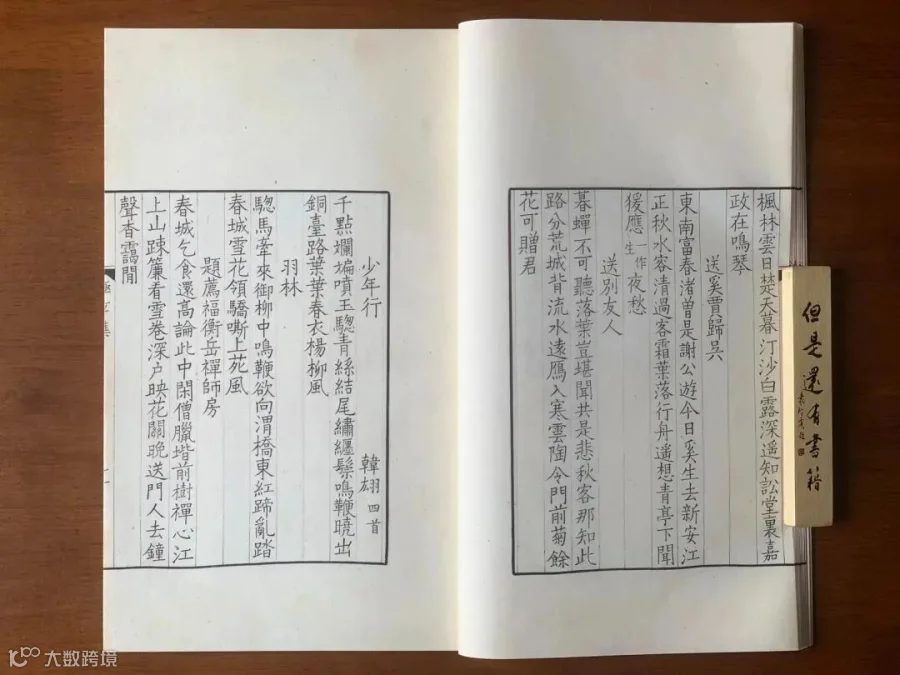 楓林雲日楚天暮汀沙白露深遥知訟堂裏嘉
政在鳴琴
送奚賈歸吳
東南富春渚曽是謝公遊今日奚生去新安江
正秋水客清過客霜葉落行舟遥想青亭下聞
猨應一作生夜愁
送别友人
暮蟬不可聽落葉豈堪聞共是悲秋客那知此
路分荒城背流水遠鴈入寒雲陶令門前菊餘
花可贈君
少年行
韓翃四首
千點斕斒噴玉驄青絲結尾繡纏騣鳴鞭曉出
銅臺路葉葉春衣楊柳風
羽林
驄馬牽來御柳中鳴鞭欲向渭橋東紅蹄亂踏
春城雪花領驕嘶上苑風
題薦福衡岳禪師房
春城乞食還高論此中閑僧臘堦前樹禪心江
上山疎簾看雪卷深户映花關晚送門人去鐘
聲杳靄閒
但是還有書籍
大数跨境